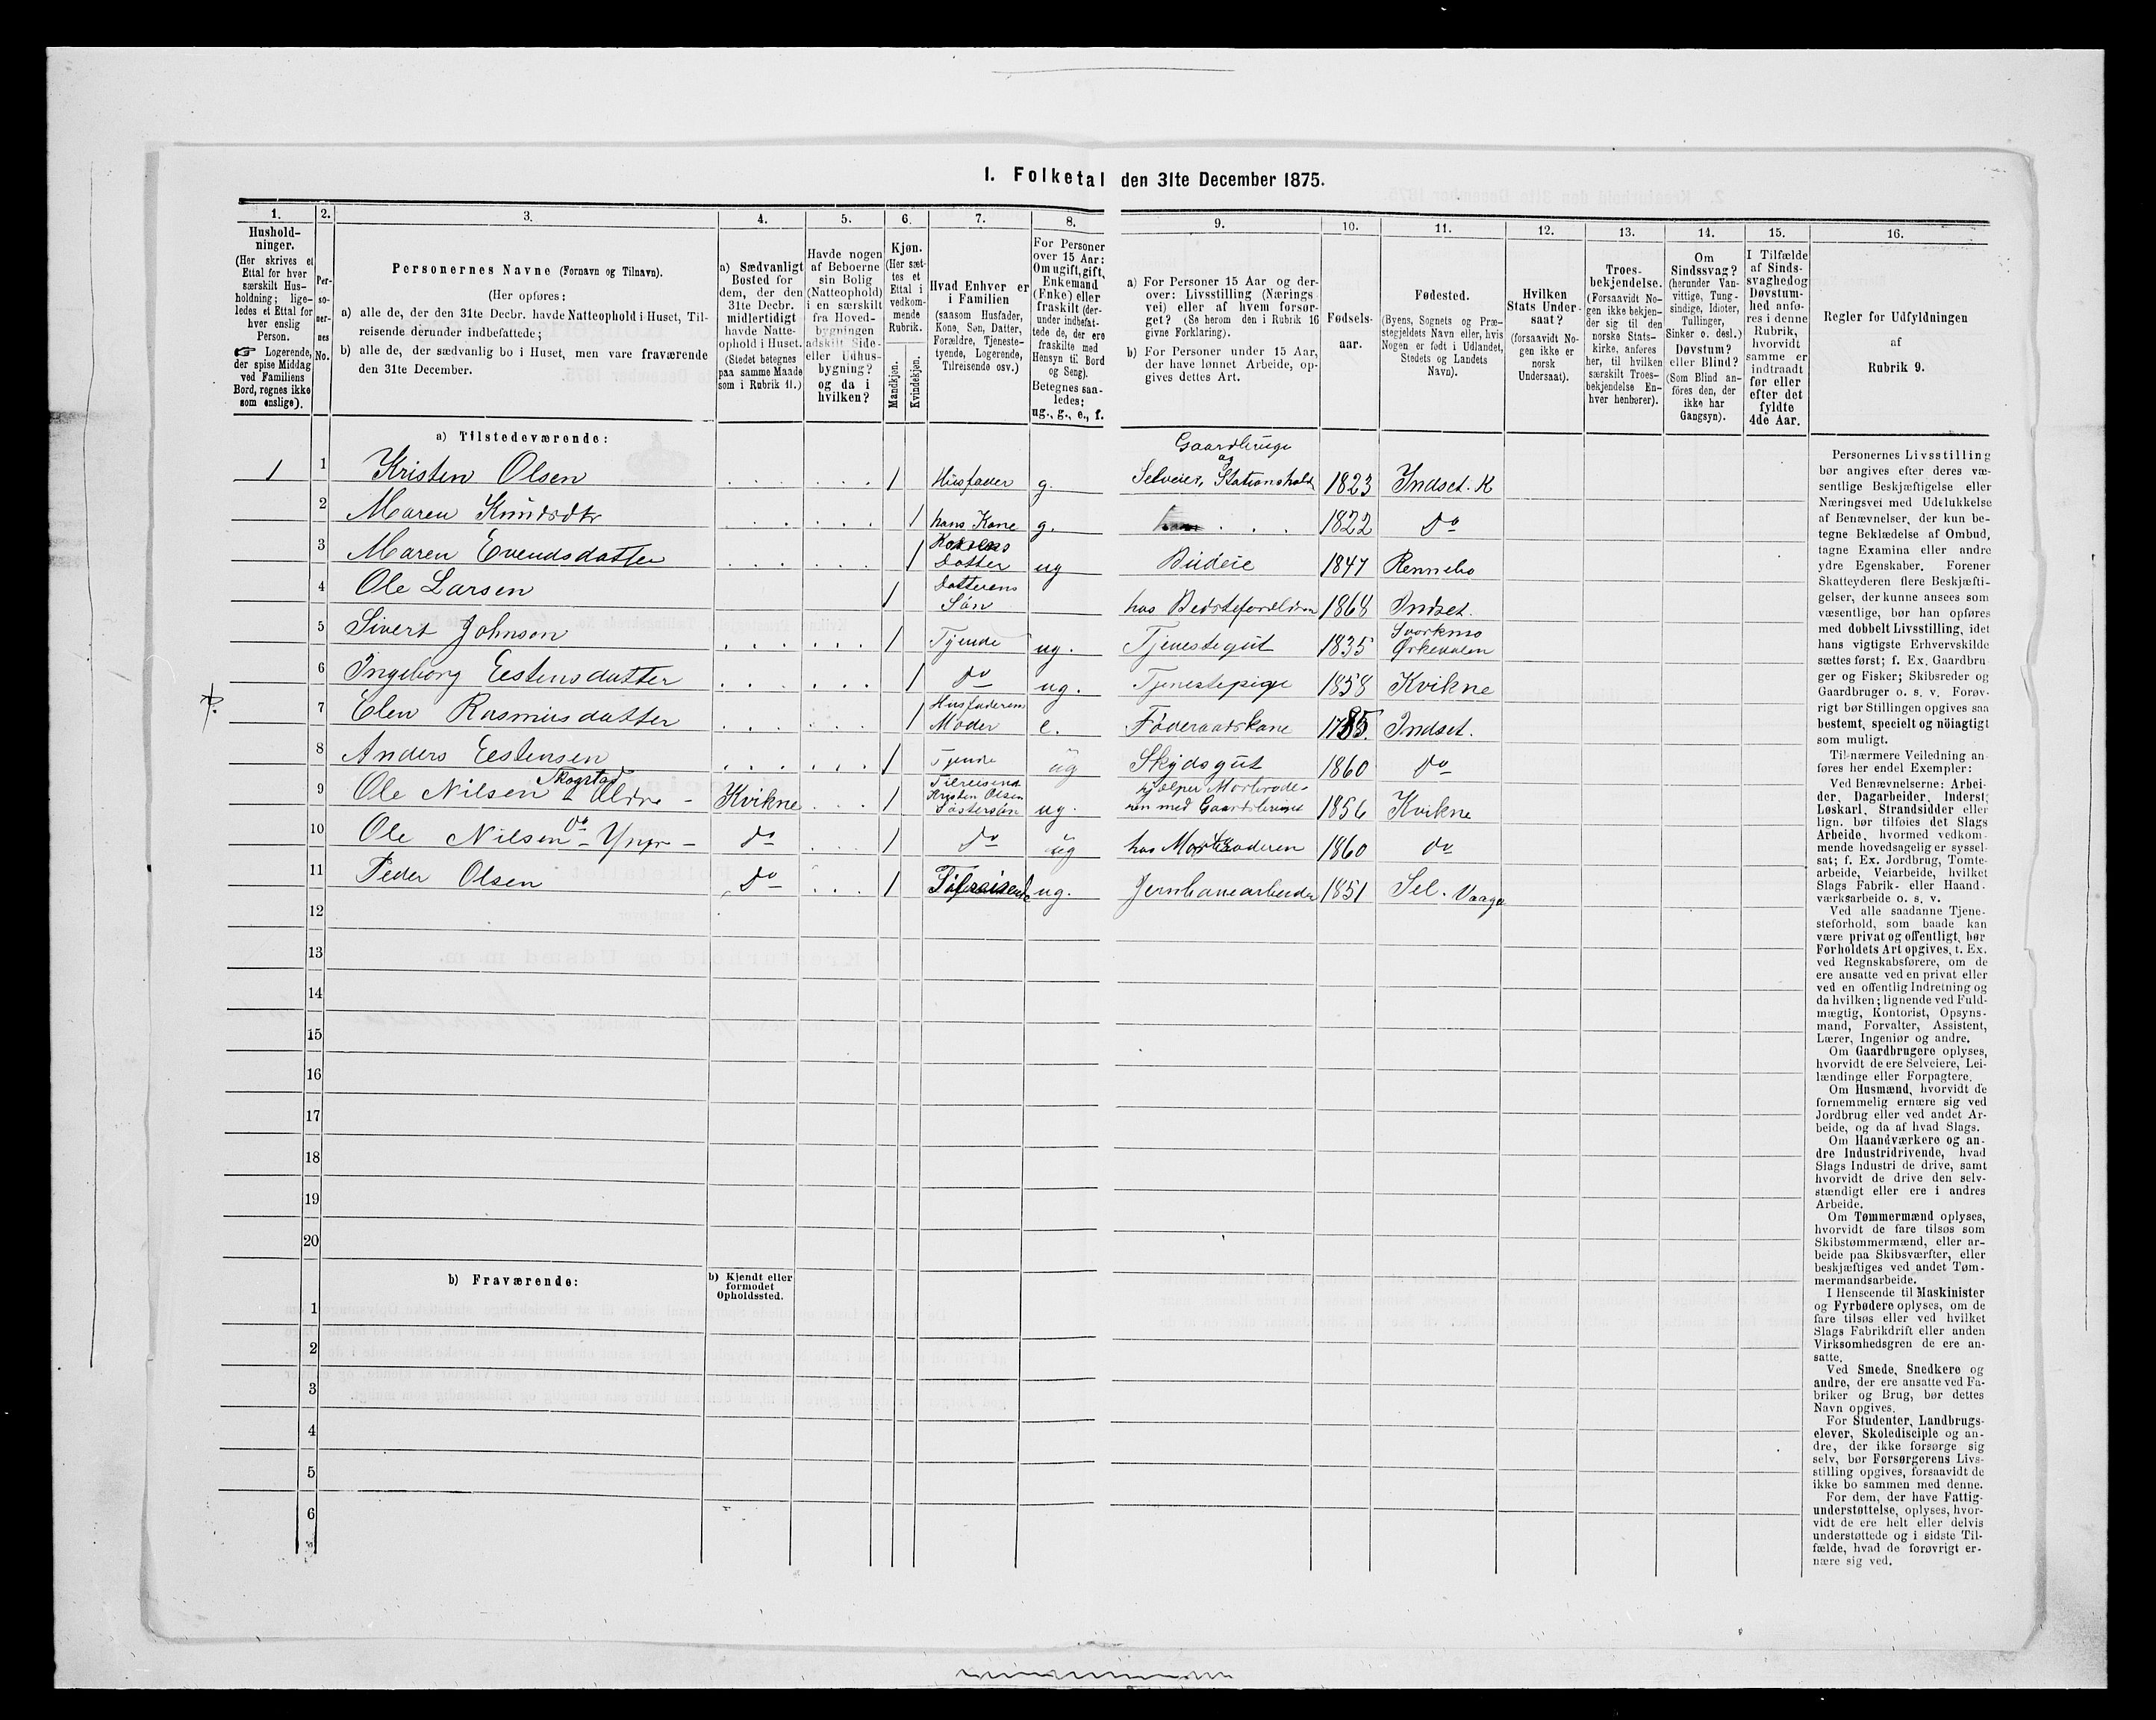 I. Folketal den 31te December 1875.
1. 2. 3. 4. 5. 6. 7. 8. 9. 10. 11. 12. 13. 14. 15. 16.
Hushold-
ninger.
(Her skrives et
Ettal for hver
særskilt Hus-
holdning; lige-
ledes et Ettal for
hver enslig
Person.
☞ Logerende,
der spise Middag
ved Familiens
Bord, regnes ikke
som enslige).
Per-
so-
ner-
nes
No.
Personernes Navne (Fornavn og Tilnavn).
(Her opføres:
a) alle de, der den 31te Decbr. havde Natteophold i Huset, Til-
reisende derunder indbefattede;
b) alle de, der sædvanlig bo i Huset, men vare fraværende
den 31te December.
a) Sædvanligt
Bosted for
dem, der den
31te Decbr.
midlertidigt
havde Natte-
ophold i Huset.
(Stedet betegnes
paa samme Maade
som i Rubrik 11.)
Havde nogen
af Beboerne
sin Bolig
(Natteophold)
i en særskilt
fra Hoved-
bygningen
adskilt Side-
eller Udhus-
bygning?
og da i
hvilken?
Kjøn.
(Her sæt-
tes et
Ettal i
vedkom-
mende
Rubrik.
Mandkjøn.
Kvindekjøn.
Hvad Enhver er
i Familien
(saasom Husfader,
Kone, Søn, Datter,
Forældre, Tjeneste-
tyende, Logerende,
Tilreisende osv.)
For Personer
over 15 Aar:
Om ugift, gift,
Enkemand
(Enke) eller
fraskilt (der-
under indbefat-
tede de, der ere
fraskilte med
Hensyn til Bord
og Seng).
Betegnes saa-
ledes:
ug., g., e., f.
a) For Personer 15 Aar og der-
over: Livsstilling (Nærings-
vei) eller af hvem forsør-
get? (Se herom den i Rubrik 16
givne Forklaring).
b) For Personer under 15 Aar,
der have lønnet Arbeide, op-
gives dettes Art.
Fødsels-
aar.
Fødested.
(Byens, Sognets og Præ-
stegjeldets Navn eller, hvis
Nogen er født i Udlandet,
Stedets og Landets
Navn).
Hvilken
Stats Under-
saat?
(forsaavidt No-
gen ikke er
norsk
Undersaat).
Troes-
bekjendelse.
(Forsaavidt No-
gen ikke bekjen-
der sig til den
norske Stats-
kirke, anføres
her, til hvilken
særskilt Troes-
bekjendelse En-
hver henhører).
Om
Sindssvag?
(herunder Van-
vittige, Tung-
sindige, Idioter,
Tullinger,
Sinker o. desl.)
Døvstum?
eller Blind?
(Som Blind an-
føres den, der
ikke har
Gangsyn).
I Tilfælde
af Sinds-
svaghed og
Døvstum-
hed anfø-
res i denne
Rubrik,
hvorvidt
samme er
indtraadt
før eller
efter det
fyldte
4de Aar.
Regler for Udfyldningen
af
Rubrik 9.
a) Tilstedeværende:
Gaardbruge
1 1 Kristen Olsen 1 Husfader g. Selveier, og Stationshold 1823 Indset. K
2 Maren Knudsdtr 1 hans Kone g. 1822 do
3 Maren Evendsdatter 1 Konens Datter ug Budeie 1847 Rennebo
4 Ole Larsen 1 Datterens Søn hos Bedsteforeldren 1868 Indset.
5 Sivert Johnson 1 Tjende ug. Tjenestegut 1835 Svorkmo Ørkedalen
6 Ingeborg Eestensdatter 1 do ug. Tjenestepige 1858 Kvikne
7 Elen Rasmusdatter 1 Husfaderens Moder e. Føderaadskone 1785. Indset.
8 Anders Eestensen 1 Tjende ug Skydsgut 1860 do
9 Ole Nilsen Skogstad - Eldre - Kvikne 1 Tilreisend Kristen Olsen Søstersøn ug. hjelper Morbrode- ren med Gaardsbruget 1856 Kvikne
10 Ole Nilsen do - Yngr - do 1 do ug hos Morbroderen 1860 do
11 Peder Olsen do 1 Tilreisende ug. Jernbanearbeider 1851 Sel. Vaage
12
13
14
15
16
17
18
19
20
b) Fraværende:
b) Kjendt eller
formodet
Opholdssted.
1
2
3
4
5
6
Personernes Livsstilling
bør angives efter deres væ-
sentlige Beskjæftigelse eller
Næringsvei med Udelukkelse
af Benævnelser, der kun be-
tegne Beklædelse af Ombud,
tagne Examina eller andre
ydre Egenskaber. Forener
Skatteyderen flere Beskjæfti-
gelser, der kunne ansees som
væsentlige, bør han opføres
med dobbelt Livsstilling, idet
hans vigtigste Erhvervskilde
sættes først; f. Ex. Gaardbru-
ger og Fisker; Skibsreder og
Gaardbruger o. s. v. Forøv-
rigt bør Stillingen opgives saa
bestemt, specielt og nöiagtigt
som muligt.
Til nærmere Veiledning an-
føres her endel Exempler:
Ved Benævnelserne: Arbei-
der, Dagarbeider, Inderst,
Løskarl, Strandsidder eller
lign. bør tilføies det Slags
Arbeide, hvormed vedkom-
mende hovedsagelig er syssel-
sat; f. Ex. Jordbrug, Tomte-
arbeide, Veiarbeide, hvilket
Slags Fabrik- eller Haand-
værksarbeide o. s. v.
Ved alle saadanne Tjene-
steforhold, som baade kan
være privat og offentligt, bør
Forholdets Art opgives, t. Ex.
ved Regnskabsførere, om de
ere ansatte ved en privat eller
ved en offentlig Indretning og
da hvilken; lignende ved Fuld-
mægtig, Kontorist, Opsyns-
mand, Forvalter, Assistent,
Lærer, Ingeniør og andre.
Om Gaardbrugere oplyses,
hvorvidt de ere Selveiere, Lei-
lændinge eller Forpagtere.
Om Husmænd, hvorvidt de
fornemmelig ernære sig ved
Jordbrug eller ved andet Ar-
beide, og da af hvad Slags.
Om Haandværkere og an-
dre Industridrivende, hvad
Slags Industri de drive, samt
hvorvidt de drive den selv-
stændigt eller ere i andres
Arbeide.
Om Tømmermænd oplyses,
hvorvidt de fare tilsøs som
Skibstømmermænd, eller ar-
beide paa Skibsværfter, eller
beskjæftiges ved andet Tøm-
mermandsarbeide.
I Henseende til Maskinister
og Fyrbødere oplyses, om de
fare tilsøs eller ved hvilket
Slags Fabrikdrift eller anden
Virksomhedsgren de ere an-
satte.
Ved Smede, Snedkere og
andre, der ere ansatte ved Fa-
briker og Brug, bør dettes
Navn opgives.
For Studenter, Landbrugs-
elever, Skoledisciple og an-
dre, der ikke forsørge sig
selv, bør Forsørgerens Livs-
stilling opgives, forsaavidt de
ikke bo sammen med denne.
For dem, der have Fattig-
understøttelse, oplyses, hvor-
vidt de ere helt eller delvis
understøttede og i sidste Til-
fælde, hvad de forøvrigt er-
nære sig ved.